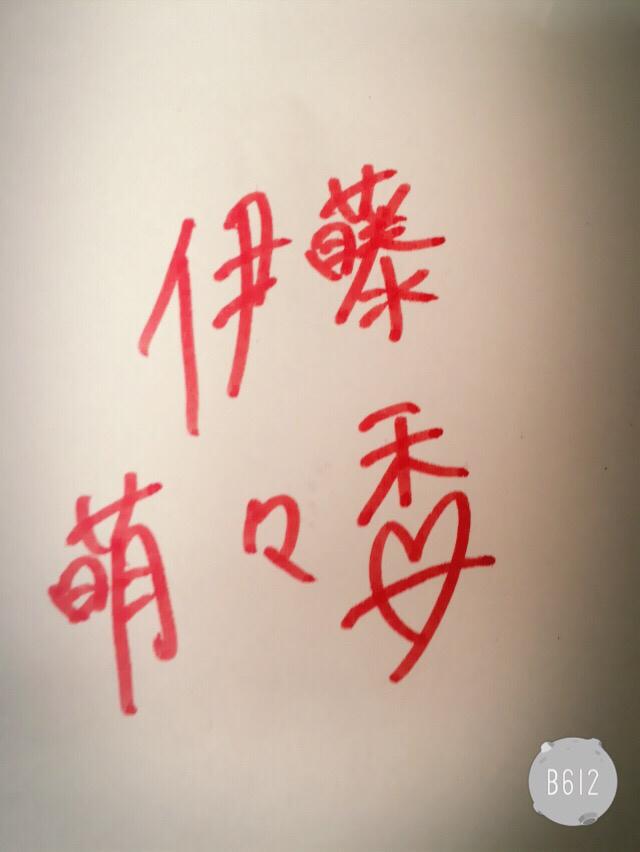 伊藤
萌々委
B612